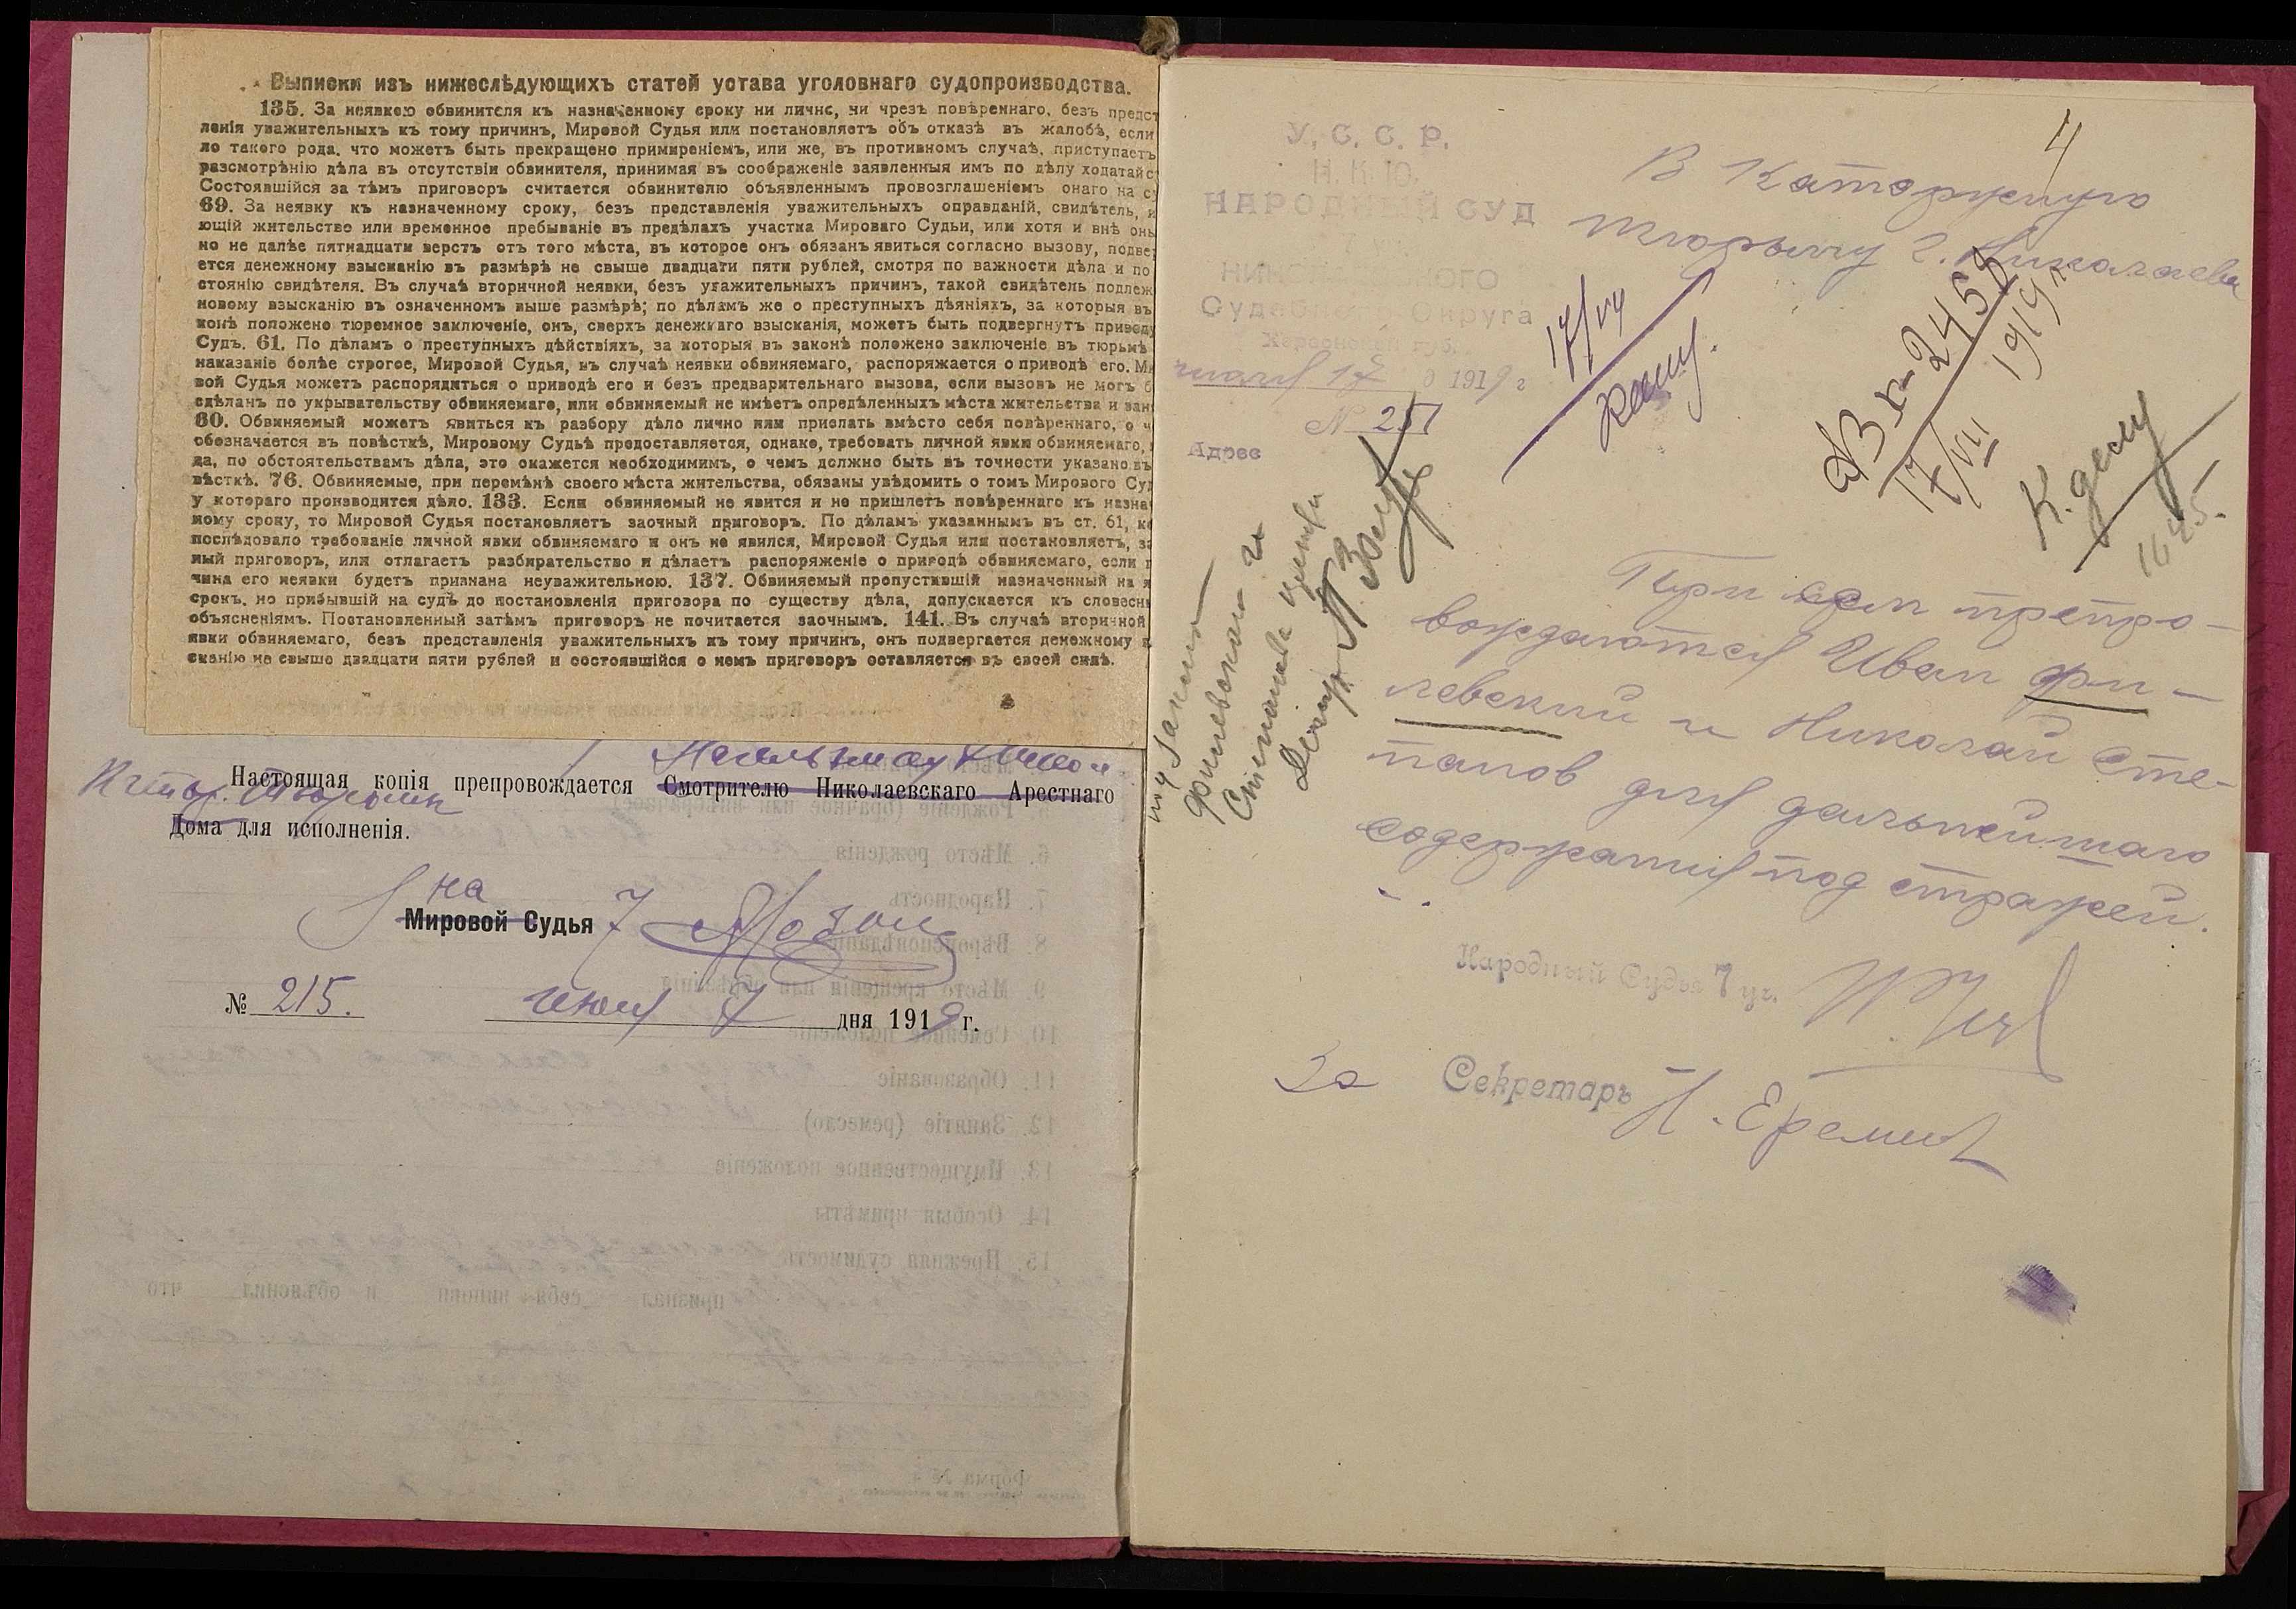 Выписки изъ нижеслѣдующихъ статей устава уголовнаго судопроизводства.
135. За неявкою обвинителя къ назначенному сроку ни личнс, ни чрезъ повѣреннаго, безъ предст
ленія уважительныхъ къ тому причин, Мировой Судья или постановляетъ объ отказѣ въ жалобѣ, если
ло такого рода, что можетъ быть прекращено примиреніемъ, или же, въ противномъ случаѣ, приступаетъ
разсмотрѣнію дѣла въ отсутствіи обвинителя, принимая въ соображеніе заявленныя имъ по дѣлу ходатайс
Состоявшійся за тѣмъ приговоръ считается обвинителю объявленнымъ провозглашеніемъ онаго на с
69. За неявку къ назначенному сроку, безъ представленія уважительныхъ оправданій, свидѣтель, и
ющій жительство или временное пребываніе въ предѣлахъ участка Мироваго Судьи, или хотя и внѣ онь
но не далѣе пятнадцати верстъ отъ того мѣста, въ которое онъ обязанъ явиться согласно вызову, подве
ется денежному взысканію въ размѣрѣ не свыше двадцати пяти рублей, смотря по важности дѣла и по
стоянію свидѣтеля. Въ случаѣ вторичной неявки, безъ уважительныхъ причинъ, такой свидѣтель подлеж
новому взысканію въ означенномъ выше размѣрѣ; по дѣламъ же о преступныхъ дѣяніяхъ, за которыя въ
конѣ положено тюремное заключеніе, онъ, сверхъ денежнаго взысканія, можетъ быть подвергнутъ приводу
Судъ. 61. По дѣламъ о преступныхъ дѣйствіяхъ, за которыя въ законѣ положено заключеніе въ тюрьмѣ
наказаніе болѣе строгое, Мировой Судья, въ случаѣ неявки обвиняемаго, распоряжается о приводѣ его. Ми
вой Судья можетъ распорядиться о приводѣ его и безъ предварительнаго вызова, если вызовъ не могъ б
сдѣланъ по укрывательству обвиняемаго, или обвиняемый не имѣетъ опредѣленныхъ мѣста жительства и зан
60. Обвиняемый можетъ явиться къ разбору дѣло лично или прислать вмѣсто себя повѣреннаго, о ч
обозначается въ повѣсткѣ, Мировому Судьѣ предоставляется, однако, требовать личной явки обвиняемаго,
да, по обстоятельствамъ дѣла, это окажется необходимимъ, о чемъ должно быть въ точности указано въ
вѣсткѣ. 76. Обвиняемые, при перемѣнѣ своего мѣста жительства, обязаны увѣдомить о томъ Мирового Суд
у котораго производится дѣло. 133. Если обвиняемый не явится и не пришлетъ повѣреннаго къ назна
ному сроку, то Мировой Судья постановляетъ заочный приговоръ. По дѣламъ указаннымъ въ ст. 61, ко
послѣдовало требованіе личной явки обвиняемаго и онъ не явился, Мировой Судья или постановляетъ, за
ный приговоръ, или отлагаетъ разбирательство и дѣлаетъ распоряженіе о приводѣ обвиняемаго, если п
чина его неявки будетъ признана неуважительною. 137. Обвиняемый пропустившій назначенный на я
срокъ, но прибывшій на судъ до постановленія приговора по существу дѣла, допускается къ словесн
объясненіямъ. Постановленный затѣмъ приговоръ не почитается заочнымъ. 141. Въ случаѣ вторичной
явки обвиняемаго, безъ представленія уважительныхъ къ тому причин, онъ подвергается денежному в
сканію не свыше двадцати пяти рублей и состоявшійся о немъ приговоръ оставляется въ своей силѣ.
Настоящая копія препровождается Смотрителю Николаевскаго Арестнаго
Дома для исполненія.
на
Мировой Судья 7
№ 215. июня 7 дня 1919 г.
4
У. С. С. Р.
Н. К. Ю.
НАРОДНЫЙ СУД
Судебного Округа
Херсонской губ.
17 1919 г
№ 251
Адрес
В Каторжную
тюрьму г. Николаева
17/VII
Вх-2458
17/VII 1919 г.
К делу
1645.
При сем препро-
вождаются Иван Фи-
левский и Николай Сте-
панов для дальнейшаго
содержания под стражей.
Народный Судья 7 уч.
За Секретарь Н. Еремин